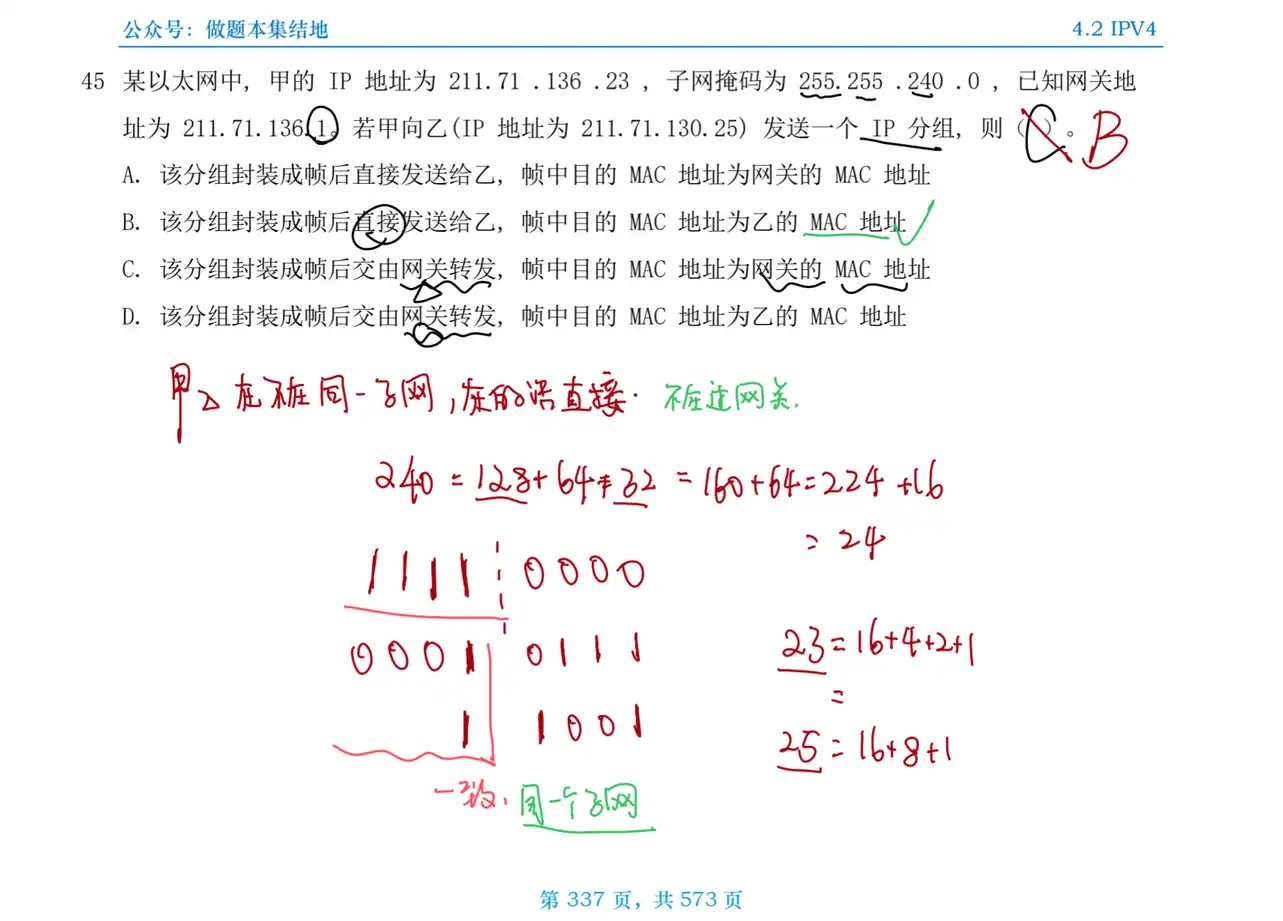 公众号：做题本集结地 4.2 IPV4
45 某以太网中，甲的 IP 地址为 211.71 .136 .23 ，子网掩码为 255.255 .240 .0 ，已知网关地
址为 211.71.136.1。若甲向乙(IP 地址为 211.71.130.25) 发送一个 IP 分组，则（ ）。 B
A. 该分组封装成帧后直接发送给乙，帧中目的 MAC 地址为网关的 MAC 地址
B. 该分组封装成帧后直接发送给乙，帧中目的 MAC 地址为乙的 MAC 地址
C. 该分组封装成帧后交由网关转发，帧中目的 MAC 地址为网关的 MAC 地址
D. 该分组封装成帧后交由网关转发，帧中目的 MAC 地址为乙的 MAC 地址
甲乙在不在同一子网，在的话直接. 不在过网关.
240 = 128+64+32 = 160+64=224 +16
= 24
1 1 1 1 0 0 0 0
0 0 0 1 0 1 1 1 23=16+4+2+1
=
1 1 0 0 1 25=16+8+1
一致, 同一个子网
第 337 页，共 573 页